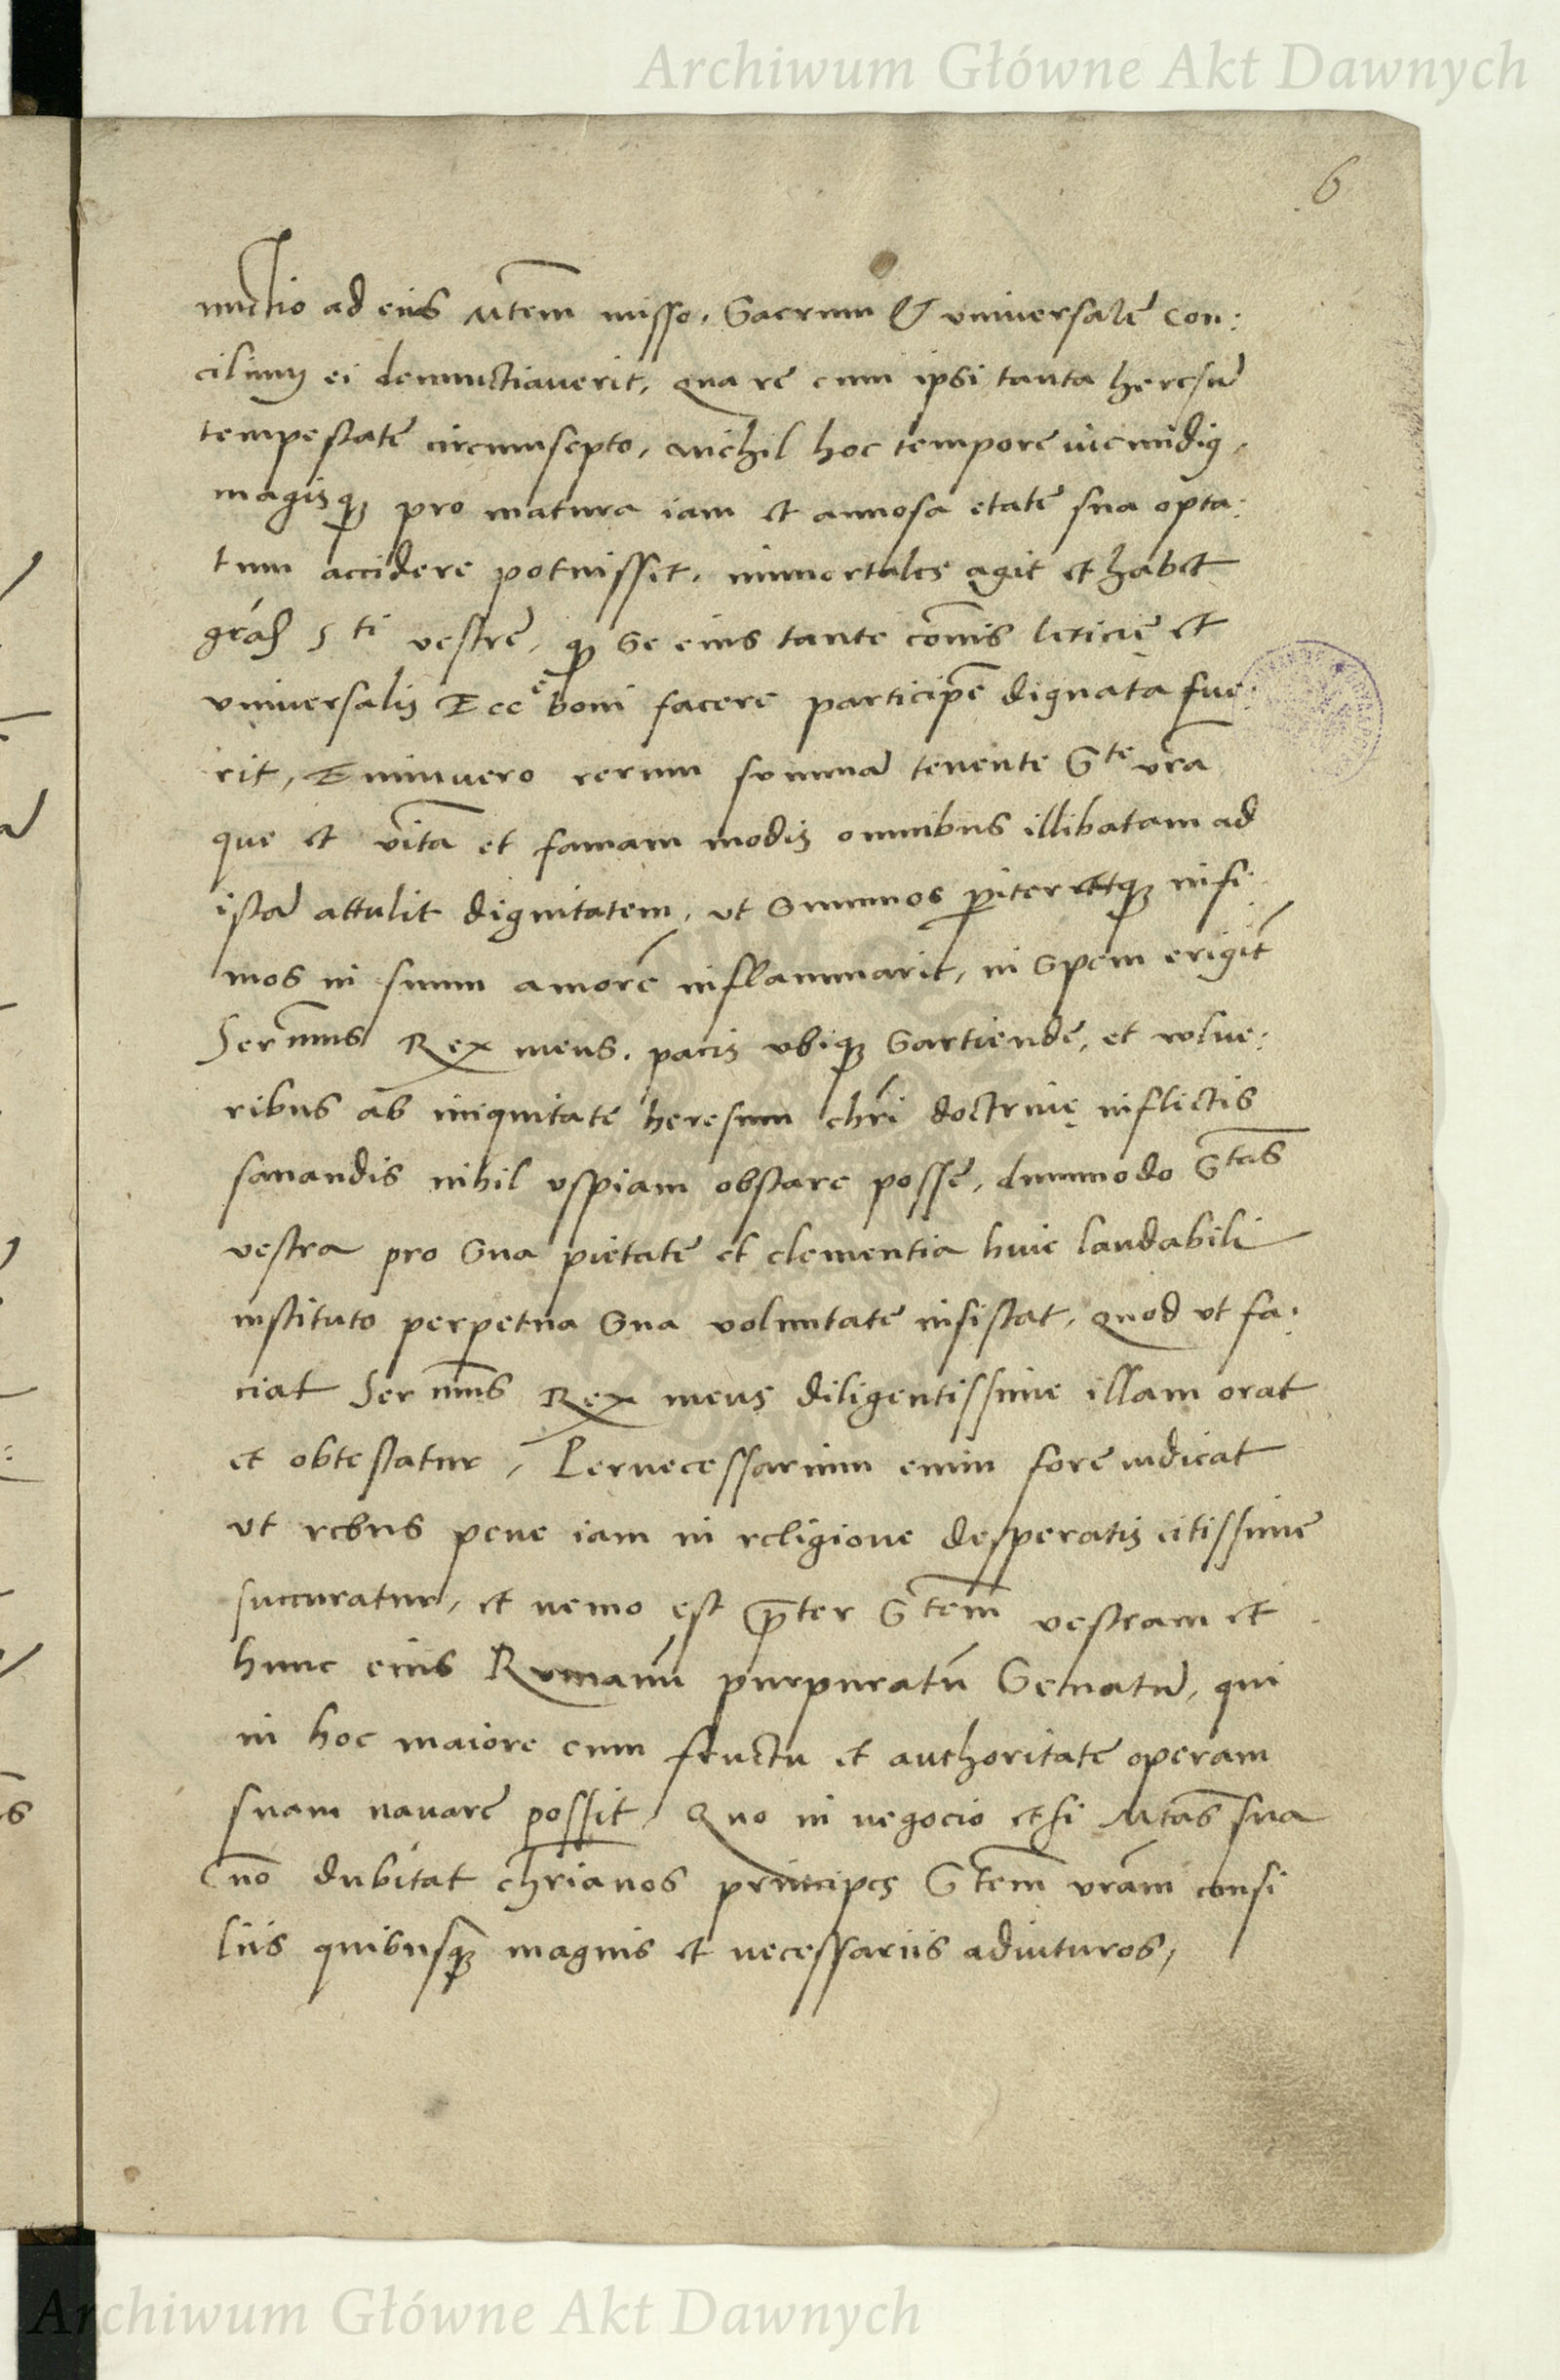 Archiwum Główne Akt Dawnych
6
nuctio ad eius Mtem misso. Sacrum & universale con:
cilium ei denunctiaverit, Qua re cum ipsi tanta heresum
tempestate circumsepto, nichil hoc tempore iucundius,
magisq pro matura iam et annosa etate sua opta:
tum accidere potuisset. immortales agit et habet
gras Sti vestre, q se eius tante cois leticie et
universalis Ecce boni facere participe dignata fue:
rit, Enimvero rerum summa tenente Ste vra
que et vita et famam modis omnibus illibatam ad
ista attulit dignitatem, ut summos piter atq infi:
mos in suum amore inflammarit, in spem erigit
Serenmus Rex meus. pacis ubiq sartiende, et vulne:
ribus ab iniquitate heresum chri doctrine inflictis
sanandis nihil uspiam obstare posse, dummodo Stas
vestra pro sua pietate et clementia huic laudabili
instituto perpetua sua voluntate insistat. Quod ut fa:
ciat Ser mus Rex meus diligentissime illam orat
et obtestatur, Pernecessarium enim fore iudicat
ut rebus pene iam in religione desperatis citissime
succuratur, et nemo est pter Stem vestram et
hunc eius Romanu purpuratu Senatu, qui
in hoc maiore cum fructu et authoritate operam
suam navare possit, Quo in negocio etsi Mtas sua
no dubitat chrianos principes Stem vram consi
liis quibusq magnis et necessariis adiuturos,
Archiwum Główne Akt Dawnych